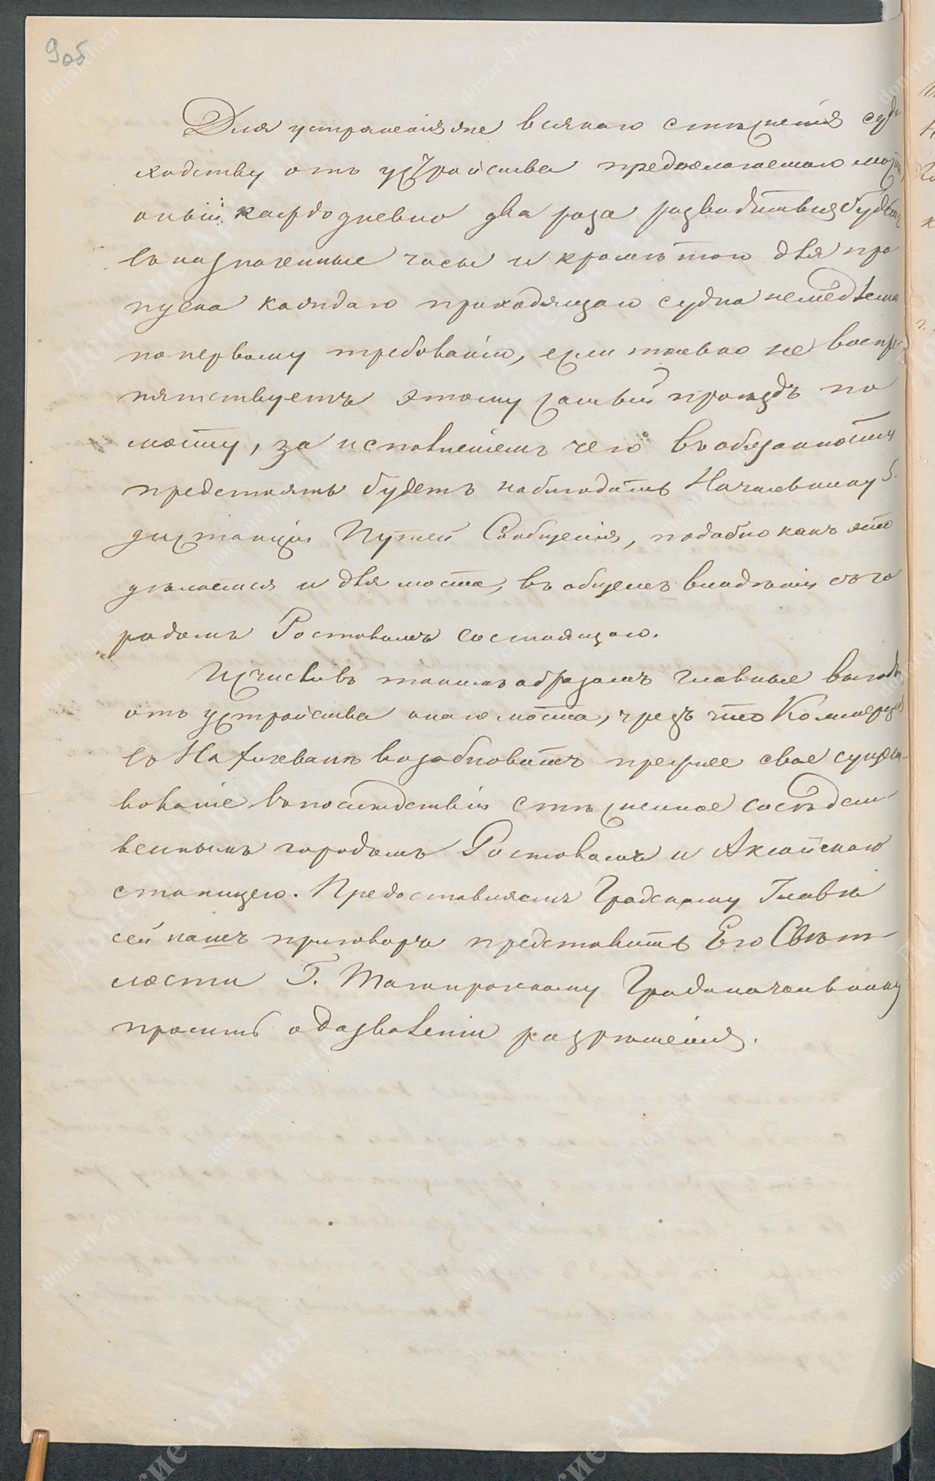 9об
Для устраненія же всякаго стѣсненія судо
ходству отъ устройства предполагаемаго моста,
оный каждодневно два раза разводиться будетъ
въ назначенные часы и кромѣ того для про
пуска каждаго проходящаго судна немедленно
по первому требованію, если только не воспре
пятствуетъ этому самый проѣздъ по
мосту, за исполненіемъ чего въ обязанности
предстоять будетъ наблюдать Начальнику
дистанціи Путей Сообщенія, подобно какъ это
дѣлается и для моста, въ общемъ владѣніи съ го
родомъ Ростовомъ состоящаго.
Исчисливъ такимъ образомъ главные выгоды
отъ устройства онаго моста, чрезъ что Коммерція
въ Нахичевани возобновитъ прежнее свое сущест-
вованіе впослѣдствіи стѣсненное сосѣдст
веннымъ городомъ Ростовомъ и Аксайскою
станицею. Предоставляемъ Градскому Главѣ
сей нашъ приговоръ представить Его Свѣт
лости Г. Таганрогскому Градоначальнику
просить о дозволеніи разрѣшенія.